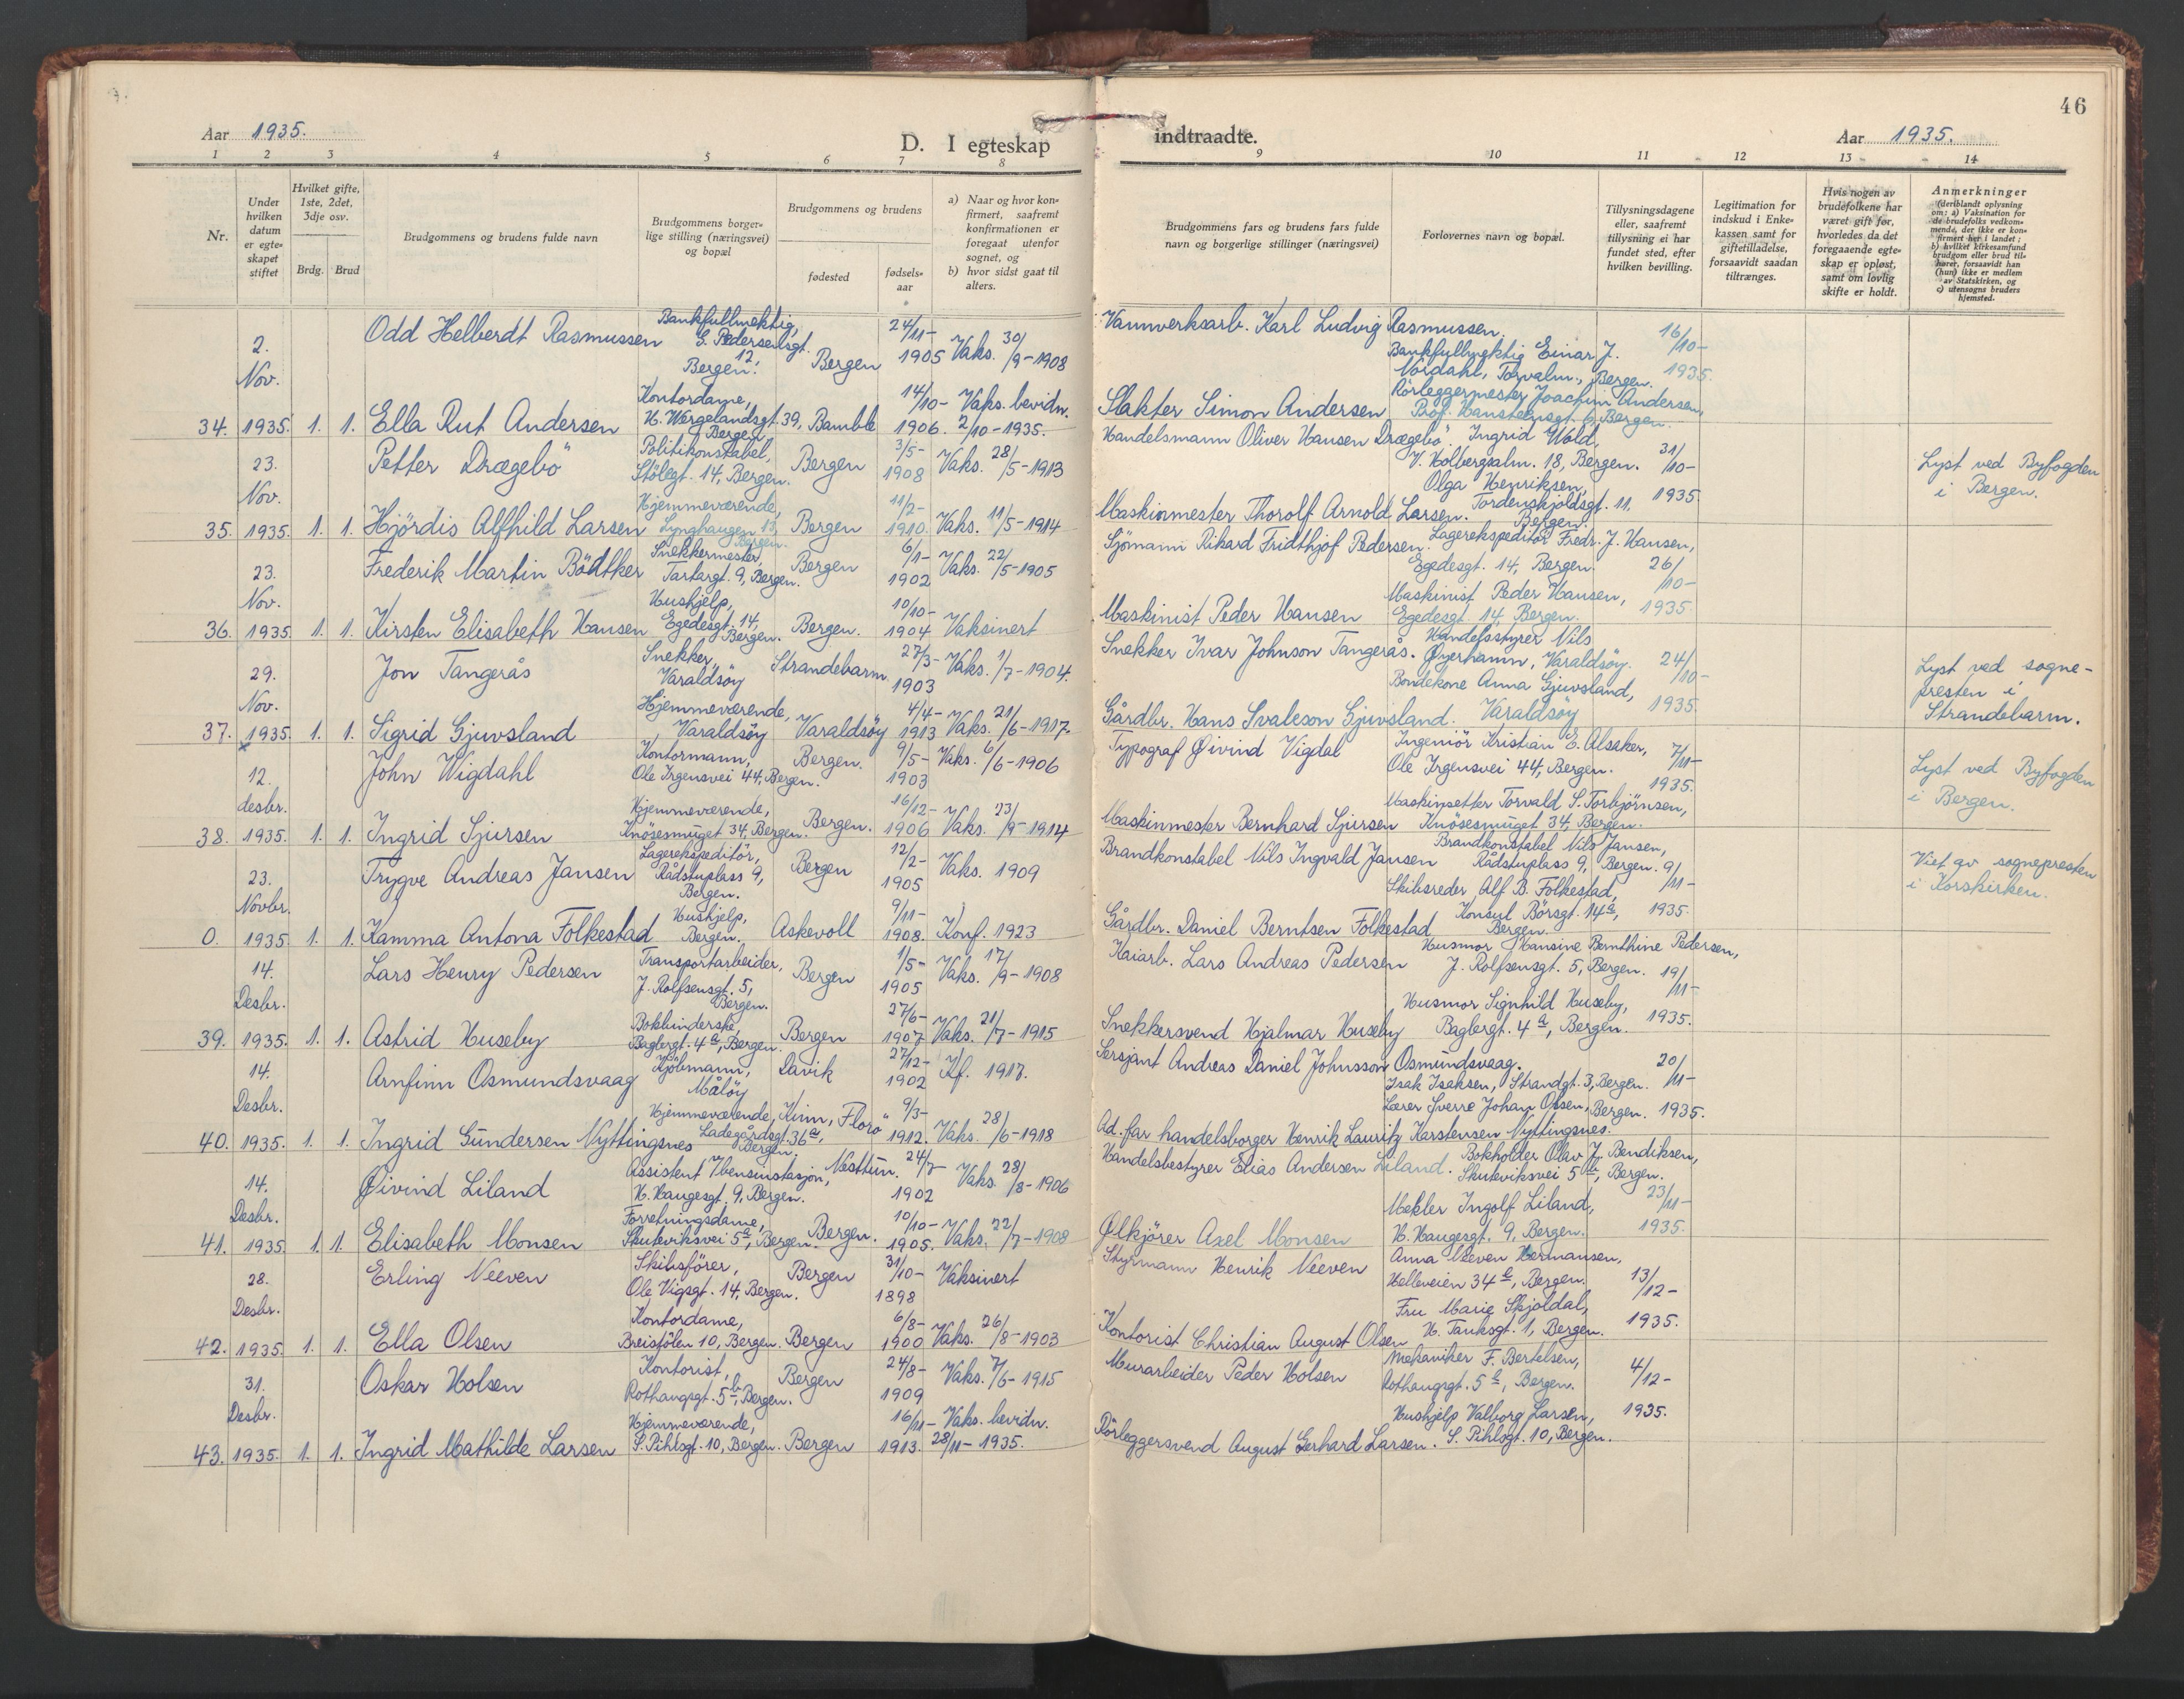 46
Aar 1935.
D. I egteskap
indtraadte.
Aar 1935.
1 2 3 4 5 6 7 8
9 10 11 12 13 14
Nr.
Under hvilken datum er egte-skapet stiftet
Hvilket gifte, 1ste, 2det, 3dje osv.
Brdg. Brud
Brudgommens og brudens fulde navn
Brudgommens borger-lige stilling (næringsvei) og bopæl
Brudgommens og brudens
fødested
fødsels-aar
a) Naar og hvor kon-firmert, saafremt konfirmationen er foregaat utenfor sognet, og
b) hvor sidst gaat til alters.
Brudgommens fars og brudens fars fulde navn og borgerlige stillinger (næringsvei)
Forlovernes navn og bopæl.
Tillysningsdagene eller, saafremt tillysning ei har fundet sted, efter hvilken bevilling.
Legitimation for indskud i Enke-kassen samt for giftetilladelse, forsaavidt saadan tiltrænges.
Hvis nogen av brudefolkene har været gift før, hvorledes da det foregaaende egte-skap er opløst, samt om lovlig skifte er holdt.
Anmerkninger (deriblandt oplysning om: a) Vaksination for de brudefolks vedkom-mende, der ikke er kon-firmert her i landet; b) hvilket kirkesamfund brudgom eller brud til-hører, forsaavidt han (hun) ikke er medlem av Statskirken, og c) utensogns bruders hjemsted.
2. Nov. Odd Helberdt Rasmussen Bankfullmektig, G. Pedersensgt. 12, Bergen. Bergen 24/11-1905 Vaks. 30/9-1908 Vannverksarb. Karl Ludvig Rasmussen. Bankfullmektig Einar J. Nordahl, Torvalm., Bergen. 16/10-1935.
34. 1935. 1. 1. Ella Rut Andersen Kontordame, H. Wergelandsgt. 39, Bergen. Bamble 14/10-1906. Vaks. bevidn. 2/10-1935. Slakter Simon Andersen Rörleggermester Joachim Andersen, Prof. Hansteensgt. 6, Bergen.
23. Nov. Petter Drægebö Politikonstabel, Stölegt. 14, Bergen. Bergen 3/5-1908 Vaks. 28/5-1913 Handelsmann Oliver Hansen Drægebö. Ingrid Wold, V. Holbergsalm. 18, Bergen. 31/10-1935 Lyst ved Byfogden i Bergen.
35. 1935. 1. 1. Hjördis Alfhild Larsen Hjemmeværende, Lynghaugen 13, Bergen. Bergen 11/2-1910. Vaks. 11/5-1914 Maskinmester Thorolf Arnold Larsen. Olga Henriksen, Tordenskjoldsgt. 11. Bergen.
23. Nov. Frederik Martin Bödtker Snekkermester, Tartargt. 9, Bergen. Bergen 6/1-1902 Vaks. 22/5-1905 Sjömann Rikard Fridthjof Pedersen. Lagerekspeditör Fredr. J. Hansen, Egedesgt. 14, Bergen. 26/10-1935.
36. 1935. 1. 1. Kirsten Elisabeth Hansen Hushjelp, Egedesgt. 14, Bergen. Bergen. 10/10-1904 Vaksinert Maskinist Peder Hansen Maskinist Peder Hansen, Egedesgt. 14, Bergen.
29. Nov. Jon Tangerås Snekker, Varaldsöy Strandebarm 27/3-1903 Vaks. 1/7-1904. Snekker Ivar Johnson Tangerås. Handelsstyrer Nils Øyerhamn, Varaldsöy. 24/10-1935. Lyst ved sogne-presten i Strandebarm.
37. 1935. 1. 1. Sigrid Gjuvsland Hjemmeværende, Varaldsöy Varaldsöy 4/4-1913 Vaks. 21/6-1917. Gårdbr. Hans Svaleson Gjuvsland. Bondekone Anna Gjuvsland, Varaldsöy
x 12. desbr. John Wigdahl Kontormann, Ole Irgensvei 44, Bergen. Bergen. 9/5-1903 Vaks. 6/6-1906 Typograf Øivind Vigdal Ingeniör Kristian E. Alsaker, Ole Irgensvei 44, Bergen. 7/11-1935. Lyst ved Byfogden i Bergen.
38. 1935. 1. 1. Ingrid Sjursen Hjemmeværende, Knösesmuget 34, Bergen. Bergen. 16/12-1906 Vaks. 23/9-1914 Maskinmester Bernhard Sjursen Maskinsetter Torvald S. Torbjörnsen, Knösesmuget 34, Bergen.
23. Novbr. Trygve Andreas Jansen Lagerekspeditör, Rådstuplass 9, Bergen. Bergen 12/2-1905 Vaks. 1909 Brandkonstabel Nils Ingvald Jansen Brandkonstabel Nils Jansen, Rådstuplass 9, Bergen. 9/11-1935. Viet av sognepresten i Korskirken.
0. 1935 1. 1. Kamma Antona Folkestad Hushjelp, Bergen. Askevoll 9/11-1908. Konf. 1923 Gårdbr. Daniel Berntsen Folkestad Skibsreder Alf B. Folkestad, Konsul Börsgt. 14a, Bergen.
14. Desbr. Lars Henry Pedersen Transportarbeider, J. Rolfsensgt. 5, Bergen. Bergen 1/5-1905 Vaks. 17/9-1908 Kaiarb. Lars Andreas Pedersen Husmor Hansine Bernthine Pedersen, J. Rolfsensgt. 5, Bergen. 19/11-1935.
39. 1935. 1. 1. Astrid Huseby Bokbinderske, Baglergt. 4a, Bergen. Bergen 27/6-1907 Vaks. 21/7-1915 Snekkersvend Hjalmar Huseby Husmor Signhild Huseby, Baglergt. 4a, Bergen.
14. Desbr. Arnfinn Osmundsvaag Kjöbmann, Målöy Davik 27/12-1902 Kf. 1917. Sersjant Andreas Daniel Johnsson Osmundsvaag. Isak Isaksen, Strandgt. 3, Bergen. 20/11-1935.
40. 1935. 1. 1. Ingrid Gundersen Nyttingsnes Hjemmeværende, Ladegårdsgt. 36a, Bergen. Kinn, Florö 9/3-1912. Vaks. 28/6-1918 Ad. far handelsborger Henrik Lauritz Karstensen Nyttingsnes. Lærer Sverre Johan Olsen, Bergen.
14. Desbr. Øivind Liland Assistent Ybensinstasjon, H. Haugesgt. 9, Bergen. Nesttun. 24/7-1902 Vaks. 28/8-1906 Handelsbestyrer Elias Andersen Liland. Bokholder Olav J. Bendiksen, Skuteviksvei 5a, Bergen. 23/11-1935.
41. 1935. 1. 1. Elisabeth Monsen Forretningsdame, Skuteviksvei 5a, Bergen. Bergen. 10/10-1905. Vaks. 22/7-1908 Ølkjörer Axel Monsen Mekler Ingolf Liland, H. Haugesgt. 9, Bergen.
28. Desbr. Erling Neeven Skibsförer, Ole Vigsgt. 14, Bergen. Bergen 31/10-1898 Vaksinert Styrmann Henrik Neeven Anna Neeven Hermansen, Helleveien 34a, Bergen. 13/12-1935.
42. 1935. 1. 1. Ella Olsen Kontordame, Breistölen 10, Bergen. Bergen 6/8-1900 Vaks. 26/8-1903 Kontorist Christian August Olsen Fru Marie Skjoldal, H. Tanksgt. 1, Bergen.
31. Desbr. Oskar Holsen Kontorist, Rothaugsgt. 5b, Bergen. Bergen 24/8-1909 Vaks. 7/6-1915 Murarbeider Peder Holsen Mekaniker F. Bertelsen, Rothaugsgt. 5b, Bergen. 4/12-1935.
43. 1935. 1. 1. Ingrid Mathilde Larsen Hjemmeværende, S. Pihlsgt. 10, Bergen. Bergen 16/11-1913. Vaks. bevidn. 28/11-1935. Rörleggersvend August Gerhard Larsen. Hushjelp Valborg Larsen, S. Pihlsgt. 10, Bergen.